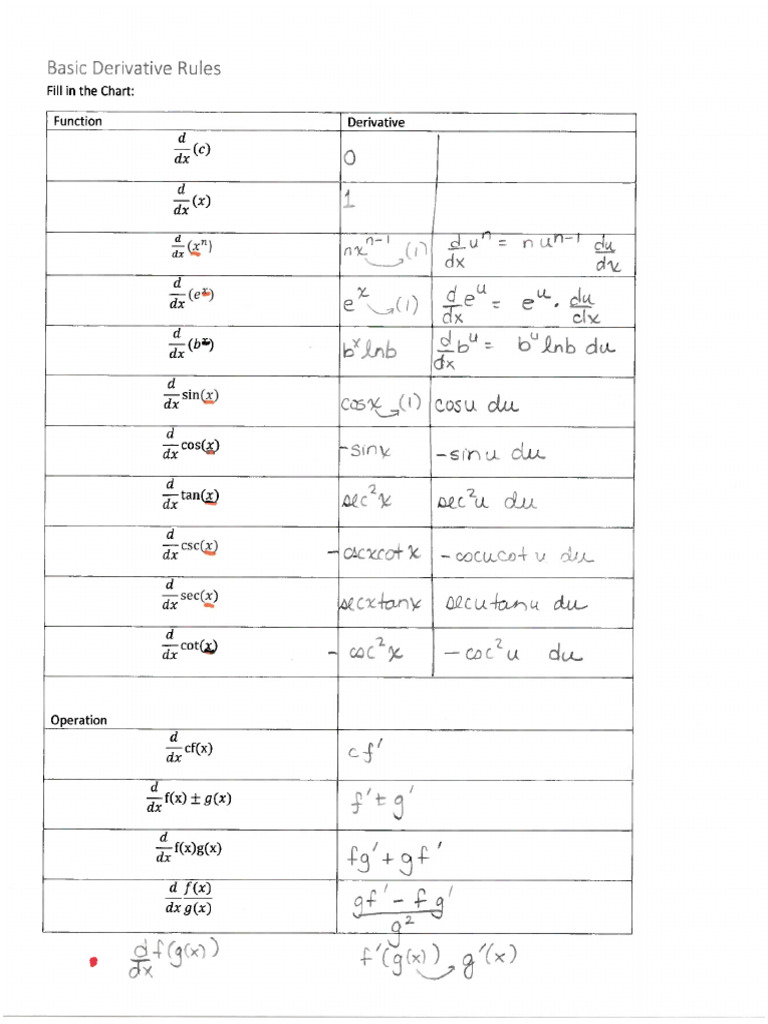 Basic Derivative Rules
Fill in the Chart:
Function Derivative
d/dx (c) 0
d/dx (x) 1
d/dx (xⁿ) nxⁿ⁻¹ (1) d/dx uⁿ = n uⁿ⁻¹ du/dx
d/dx (eˣ) eˣ (1) d/dx eᵘ = eᵘ · du/dx
d/dx (bˣ) bˣ lnb d/dx bᵘ = bᵘ lnb du
d/dx sin(x) cosx (1) cosu du
d/dx cos(x) -sinx -sinu du
d/dx tan(x) sec²x sec²u du
d/dx csc(x) -cscxcotx -cscucotu du
d/dx sec(x) secxtanx secutanu du
d/dx cot(x) - csc²x -csc²u du
Operation
d/dx cf(x) cf'
d/dx f(x) ± g(x) f' ± g'
d/dx f(x)g(x) fg' + gf'
d/dx f(x)/g(x) gf' - fg' / g²
d/dx f(g(x)) f'(g(x)) g'(x)